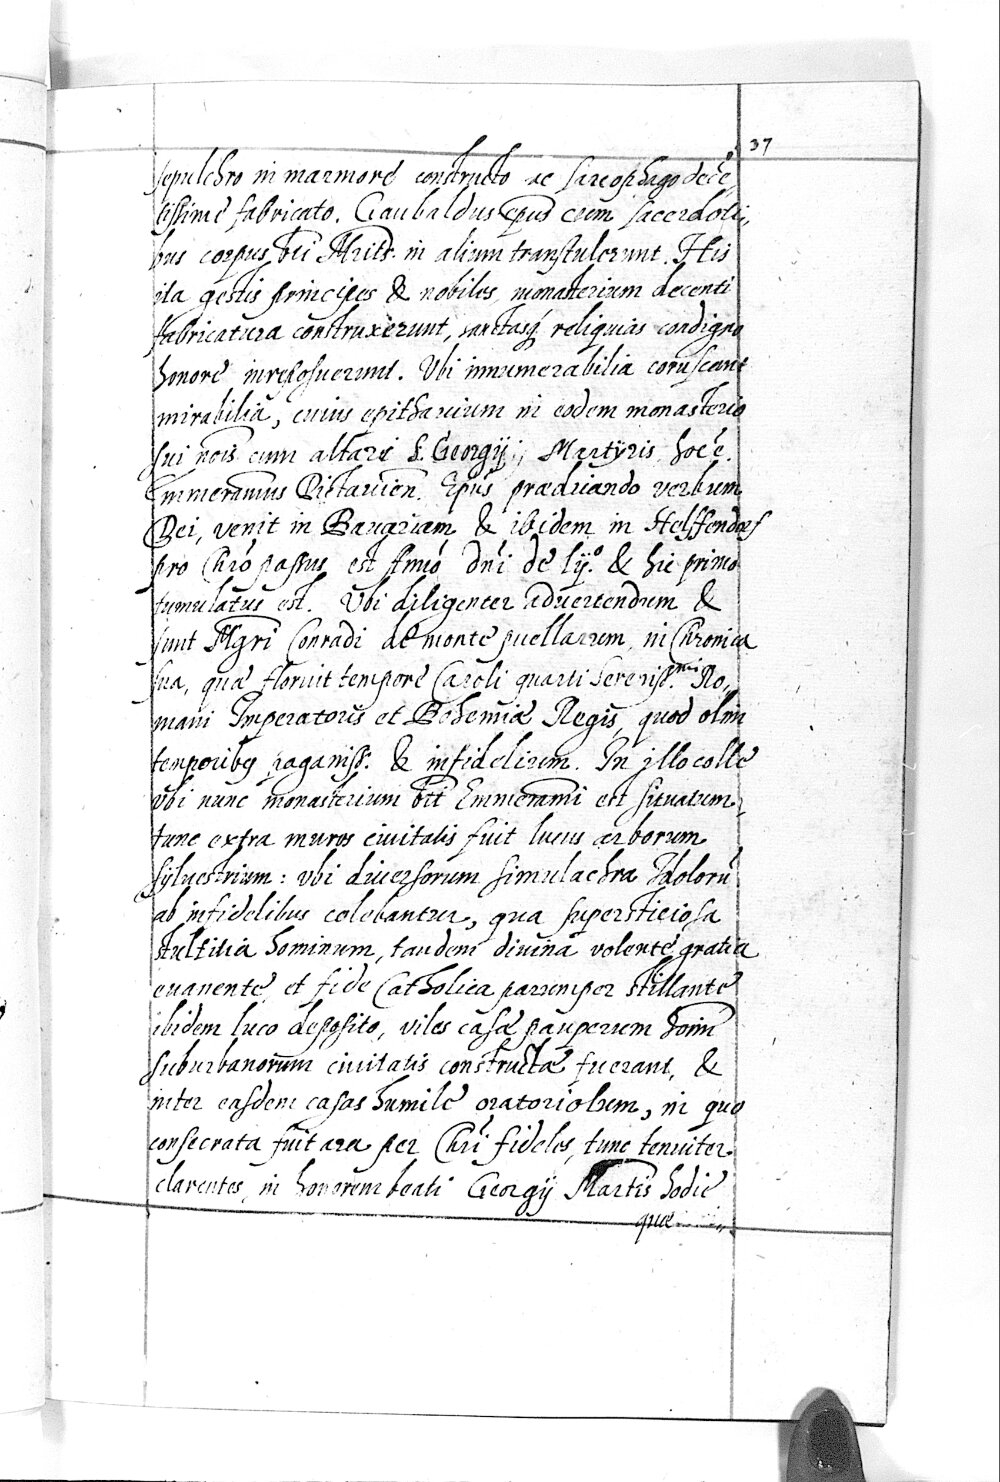 37
sepulchro in marmore constructo ac sarcophago decē,
tissime fabricato. Gaubaldus epus cum sacerdoti,
bus corpus bti Mrits. in alium transtulerunt. His
ita gestis principes & nobiles monasterium decenti
fabricatura construxerunt, sanctasq́ reliquias condigno
honore inreposuerunt. Vbi innumerabilia coruscant
mirabilia, cuius epithavium in eodem monasterio
sui nois cum altari S. Georgij Martyris hoc ē.
Emmeramus Pictavien. Epus prædicando verbum
Dei, venit in Bavariam & ibidem in Helffendorf
pro Chro passus est Anno Dni dc lij.° & hic primo
tumulatus est. Vbi diligenter advertendum &
sunt Mgri Conradi de monte puellarum, in Chronica
sua, quæ floruit tempore Caroli quarti Sereniss.mi Ro,
mani Imperatoris et Bohemiæ Regis, quod olim
temporibus paganiss. & infidelium. In illo colle
vbi nunc monasterium bti Emmerami est situatum,
tunc extra muros civitatis fuit lucus arborum
sylvestrium: vbi diversorum simulachra Idolorū
ab infidelibus colebantur, qua superstitiosa
stultitia hominum, tandem divina volente gratia
evanente, et fide Catholica parumper stillante
ibidem luco deposito, viles casæ pauperum hoim
suburbanorum civitatis constructæ fuerant, &
inter easdem casas humile oratoriolum, in quo
consecrata fuit ara per Chri fideles, tunc tenuiter
clarentes, in honorem beati Georgij Martis hodie
quæ